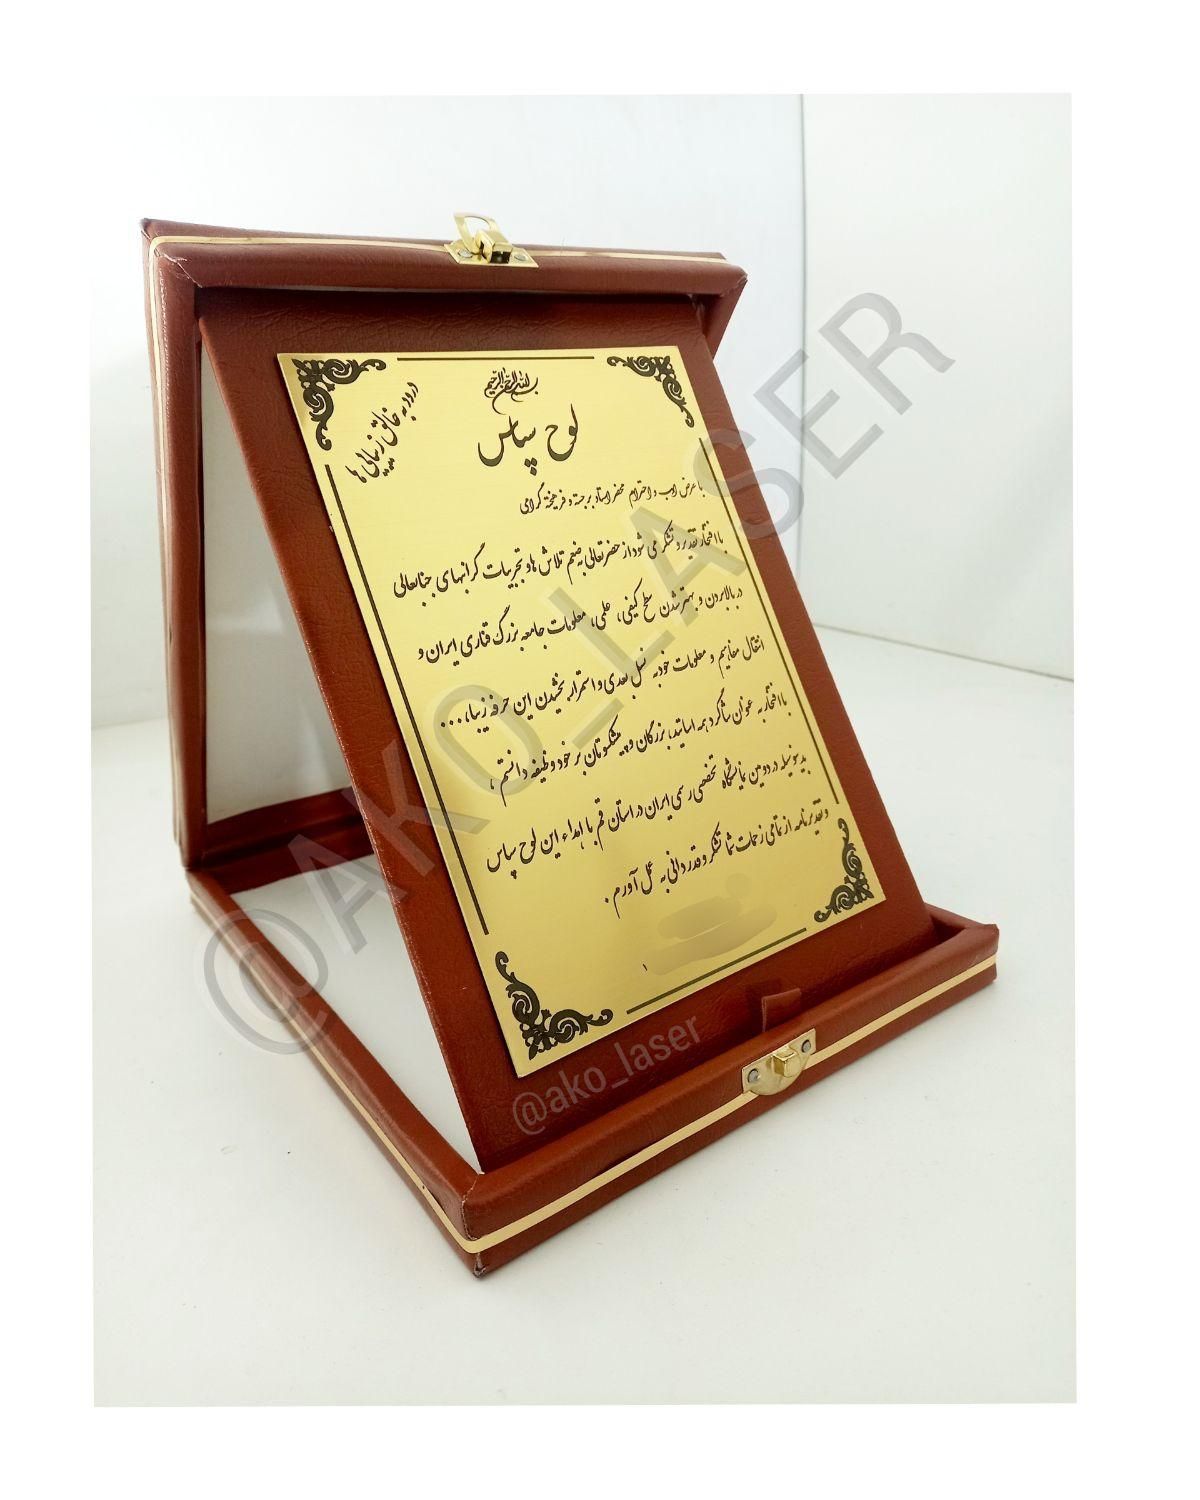 بسم الله الرحمن الرحیم
درود به خالق زیبایی ها
لوح سپاس
با عرض ادب و احترام محضر استاد برجسته و فرهیخته گرامی
با افتخار تقدیر و تشکر می شود از حضرتعالی به ضم تلاش ها و تجربیات گرانبهای جنابعالی
در بالابردن و بهتر شدن سطح کیفی، علمی، معلومات جامعه بزرگ قناری ایران و
انتقال مفاهیم و معلومات خود به نسل بعدی و استمرار بخشیدن این حرفه زیبا، ...
با افتخار به عنوان شاگرد همه اساتید، بزرگان و پیشکسوتان بر خود وظیفه دانستم ،
بدینوسیله در دومین نمایشگاه تخصصی رسمی ایران در استان قم با اهداء این لوح سپاس
و تقدیرنامه از تمامی زحمات شما تشکر و قدردانی به عمل آورم .
@AKO_LASER
@ako_laser